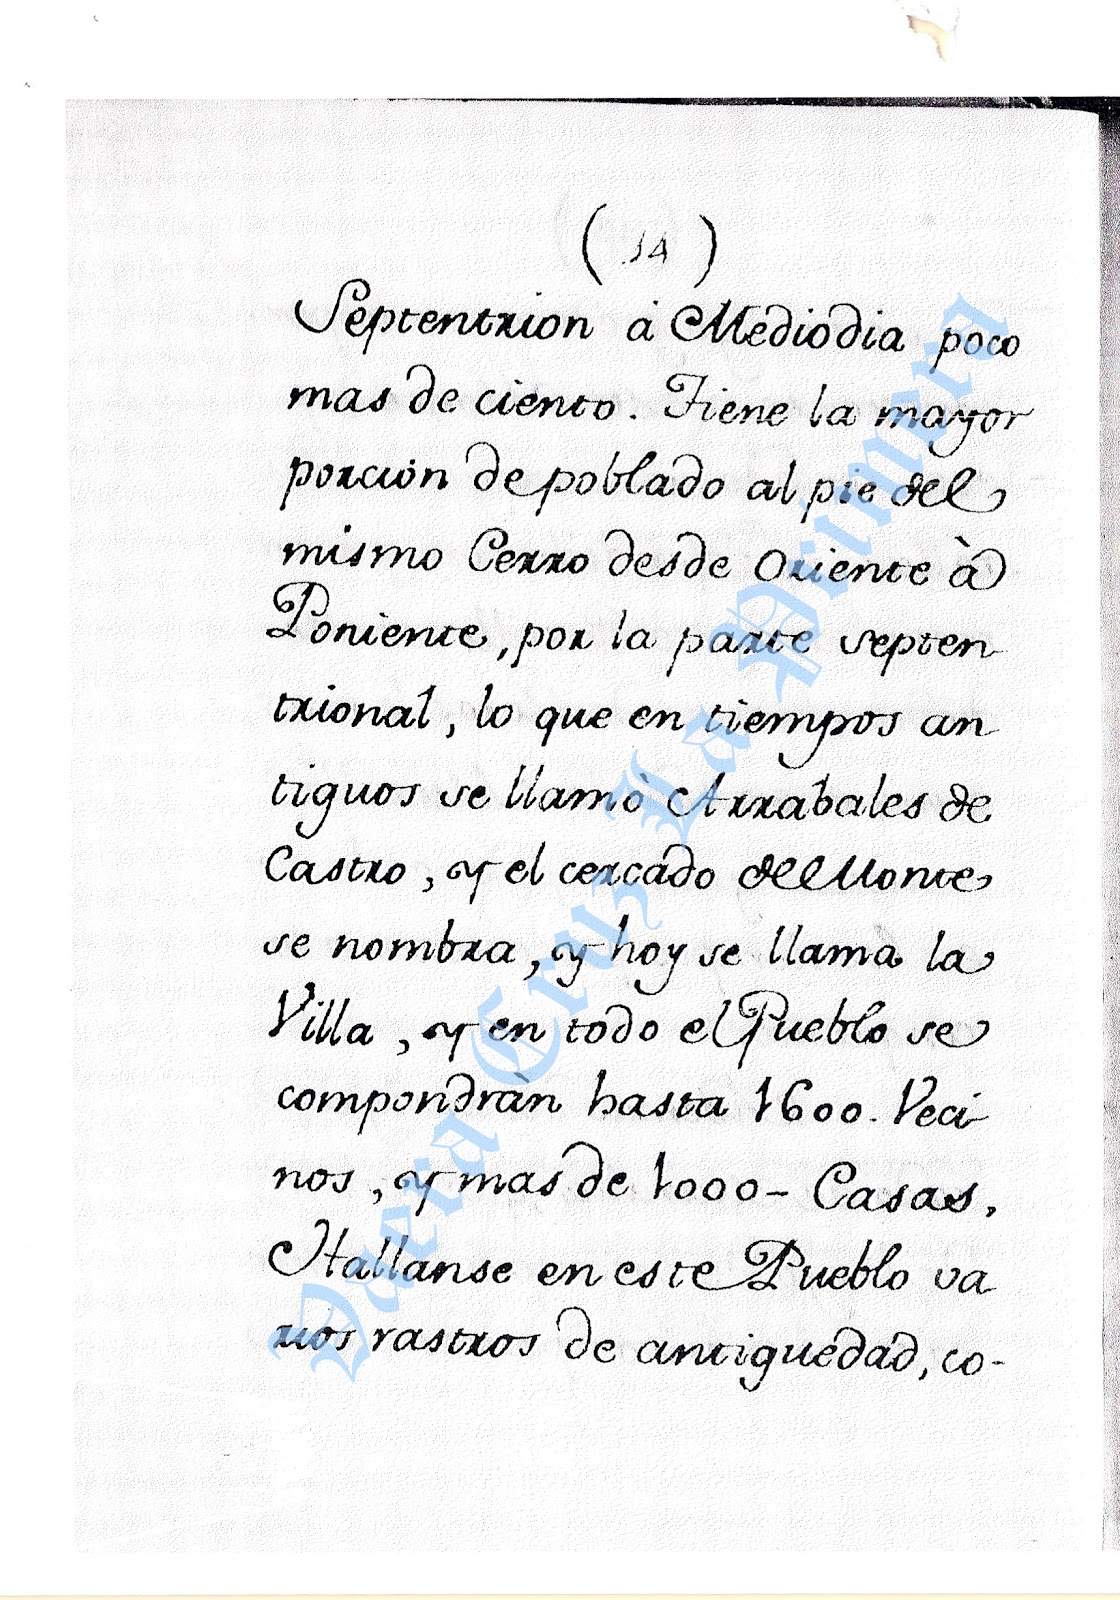 ( 14 )
Septentrion á Mediodia poco
mas de ciento. Tiene la mayor
porcion de poblado al pie del
mismo Cerro desde Oriente à
Poniente, por la parte septen
trional, lo que en tiempos an
tiguos se llamò Arrabales de
Castro, y el cercado del Monte
se nombra, y hoy se llama la
Villa, y en todo el Pueblo se
compondràn hasta 1600. Veci
nos, y mas de 1000- Casas,
Hallanse en este Pueblo va
rios rastros de antiguedad, co-
Daera Cruz La Primera